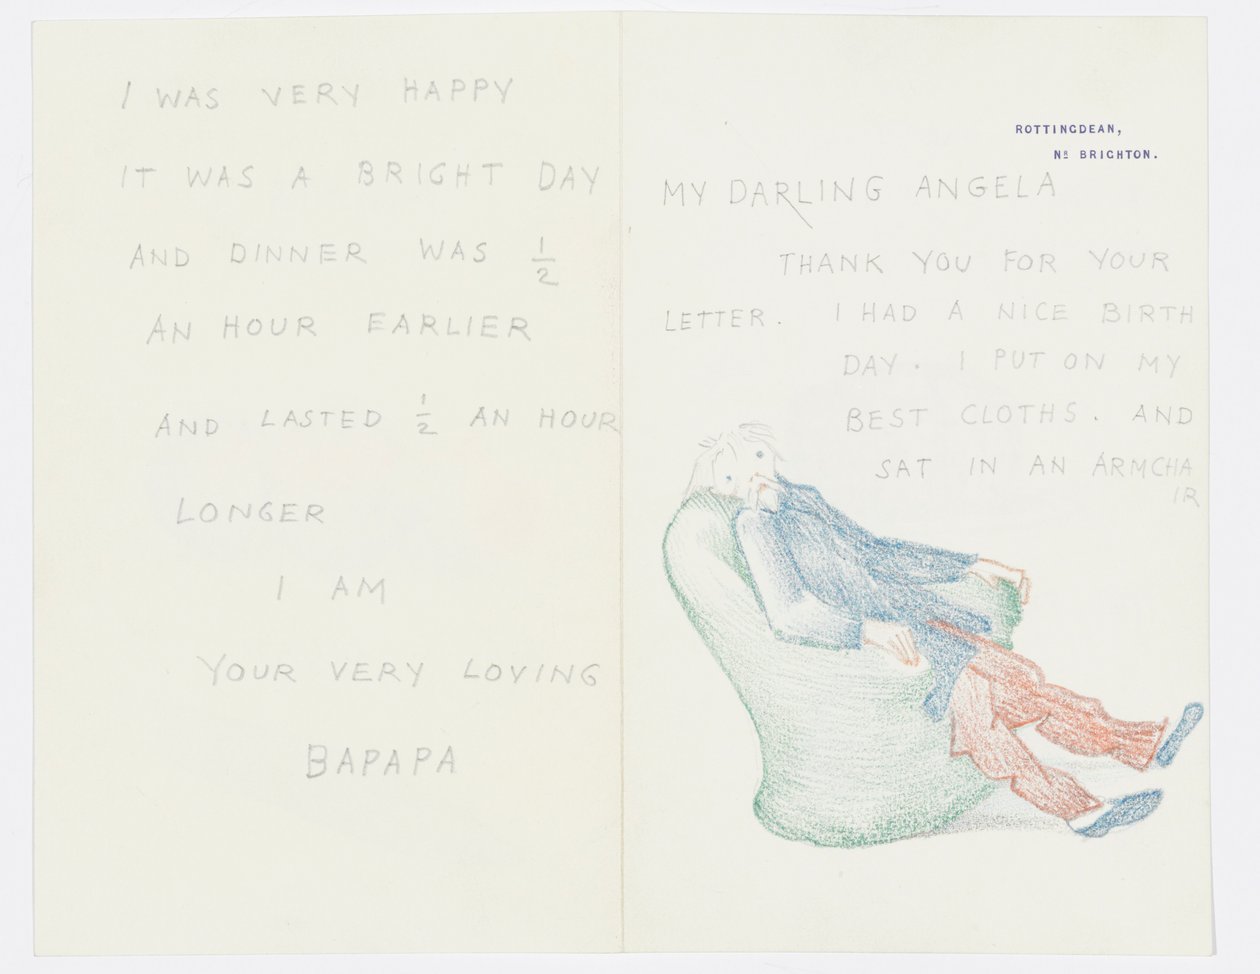 ROTTINGDEAN,
Nᴿ BRIGHTON.
MY DARLING ANGELA
THANK YOU FOR YOUR
LETTER. I HAD A NICE BIRTH
DAY. I PUT ON MY
BEST CLOTHS. AND
SAT IN AN ARMCHA
IR
I WAS VERY HAPPY
IT WAS A BRIGHT DAY
AND DINNER WAS ½
AN HOUR EARLIER
AND LASTED ½ AN HOUR
LONGER
I AM
YOUR VERY LOVING
BAPAPA